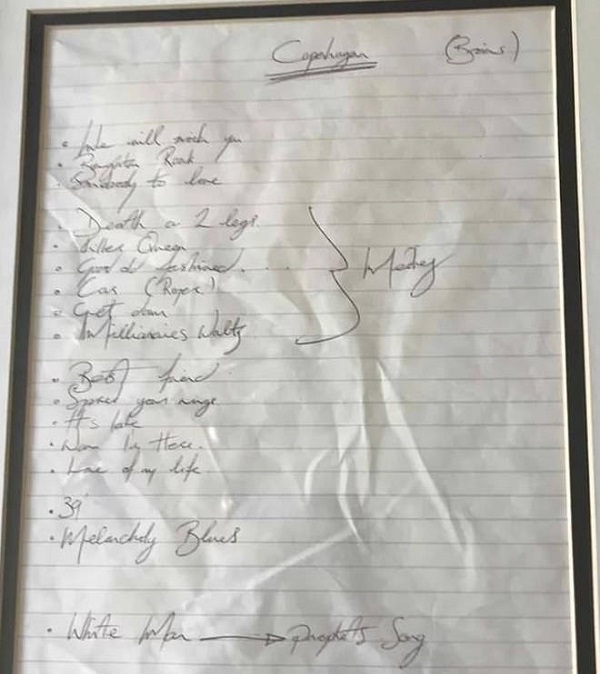 Copenhagen (Brians)
• We will rock you
• Brighton Rock
• Somebody to love
• Death on 2 legs.
• Killer Queen
• Good old fashioned . . .
• Car (Roger)
• Get down
• Millionaires Waltz
Medley
• Best friend
• Spread your wings
• It's late
• Now I'm Here.
• Love of my life
• 39'
• Melancholy Blues
• White Man → Prophet's Song